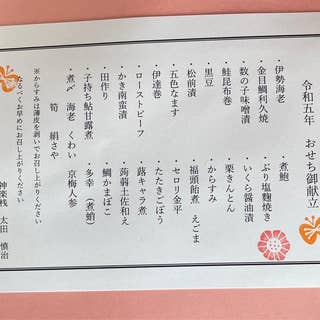 令和五年　おせち御献立
・伊勢海老　・煮鮑
・金目鯛利久焼　・ぶり塩麹焼き
・数の子味噌漬　・いくら醤油漬
・鮭昆布巻　・栗きんとん
・黒豆　・からすみ
・松前漬　・福頭飴煮　えごま
・五色なます　・セロリ金平
・伊達巻　・たたきごぼう
・ローストビーフ　・蕗キャラ煮
・かき南蛮漬　・蒟蒻土佐和え
・田作り　・鯛かまぼこ
・子持ち鮎甘露煮　・多幸（煮蛸）
・煮〆　海老　くわい　京梅人参
筍　絹さや
※からすみは薄皮を剥いでお召し上がりください
なるべくお早めにお召し上がりください
神楽桟　太田　慎治